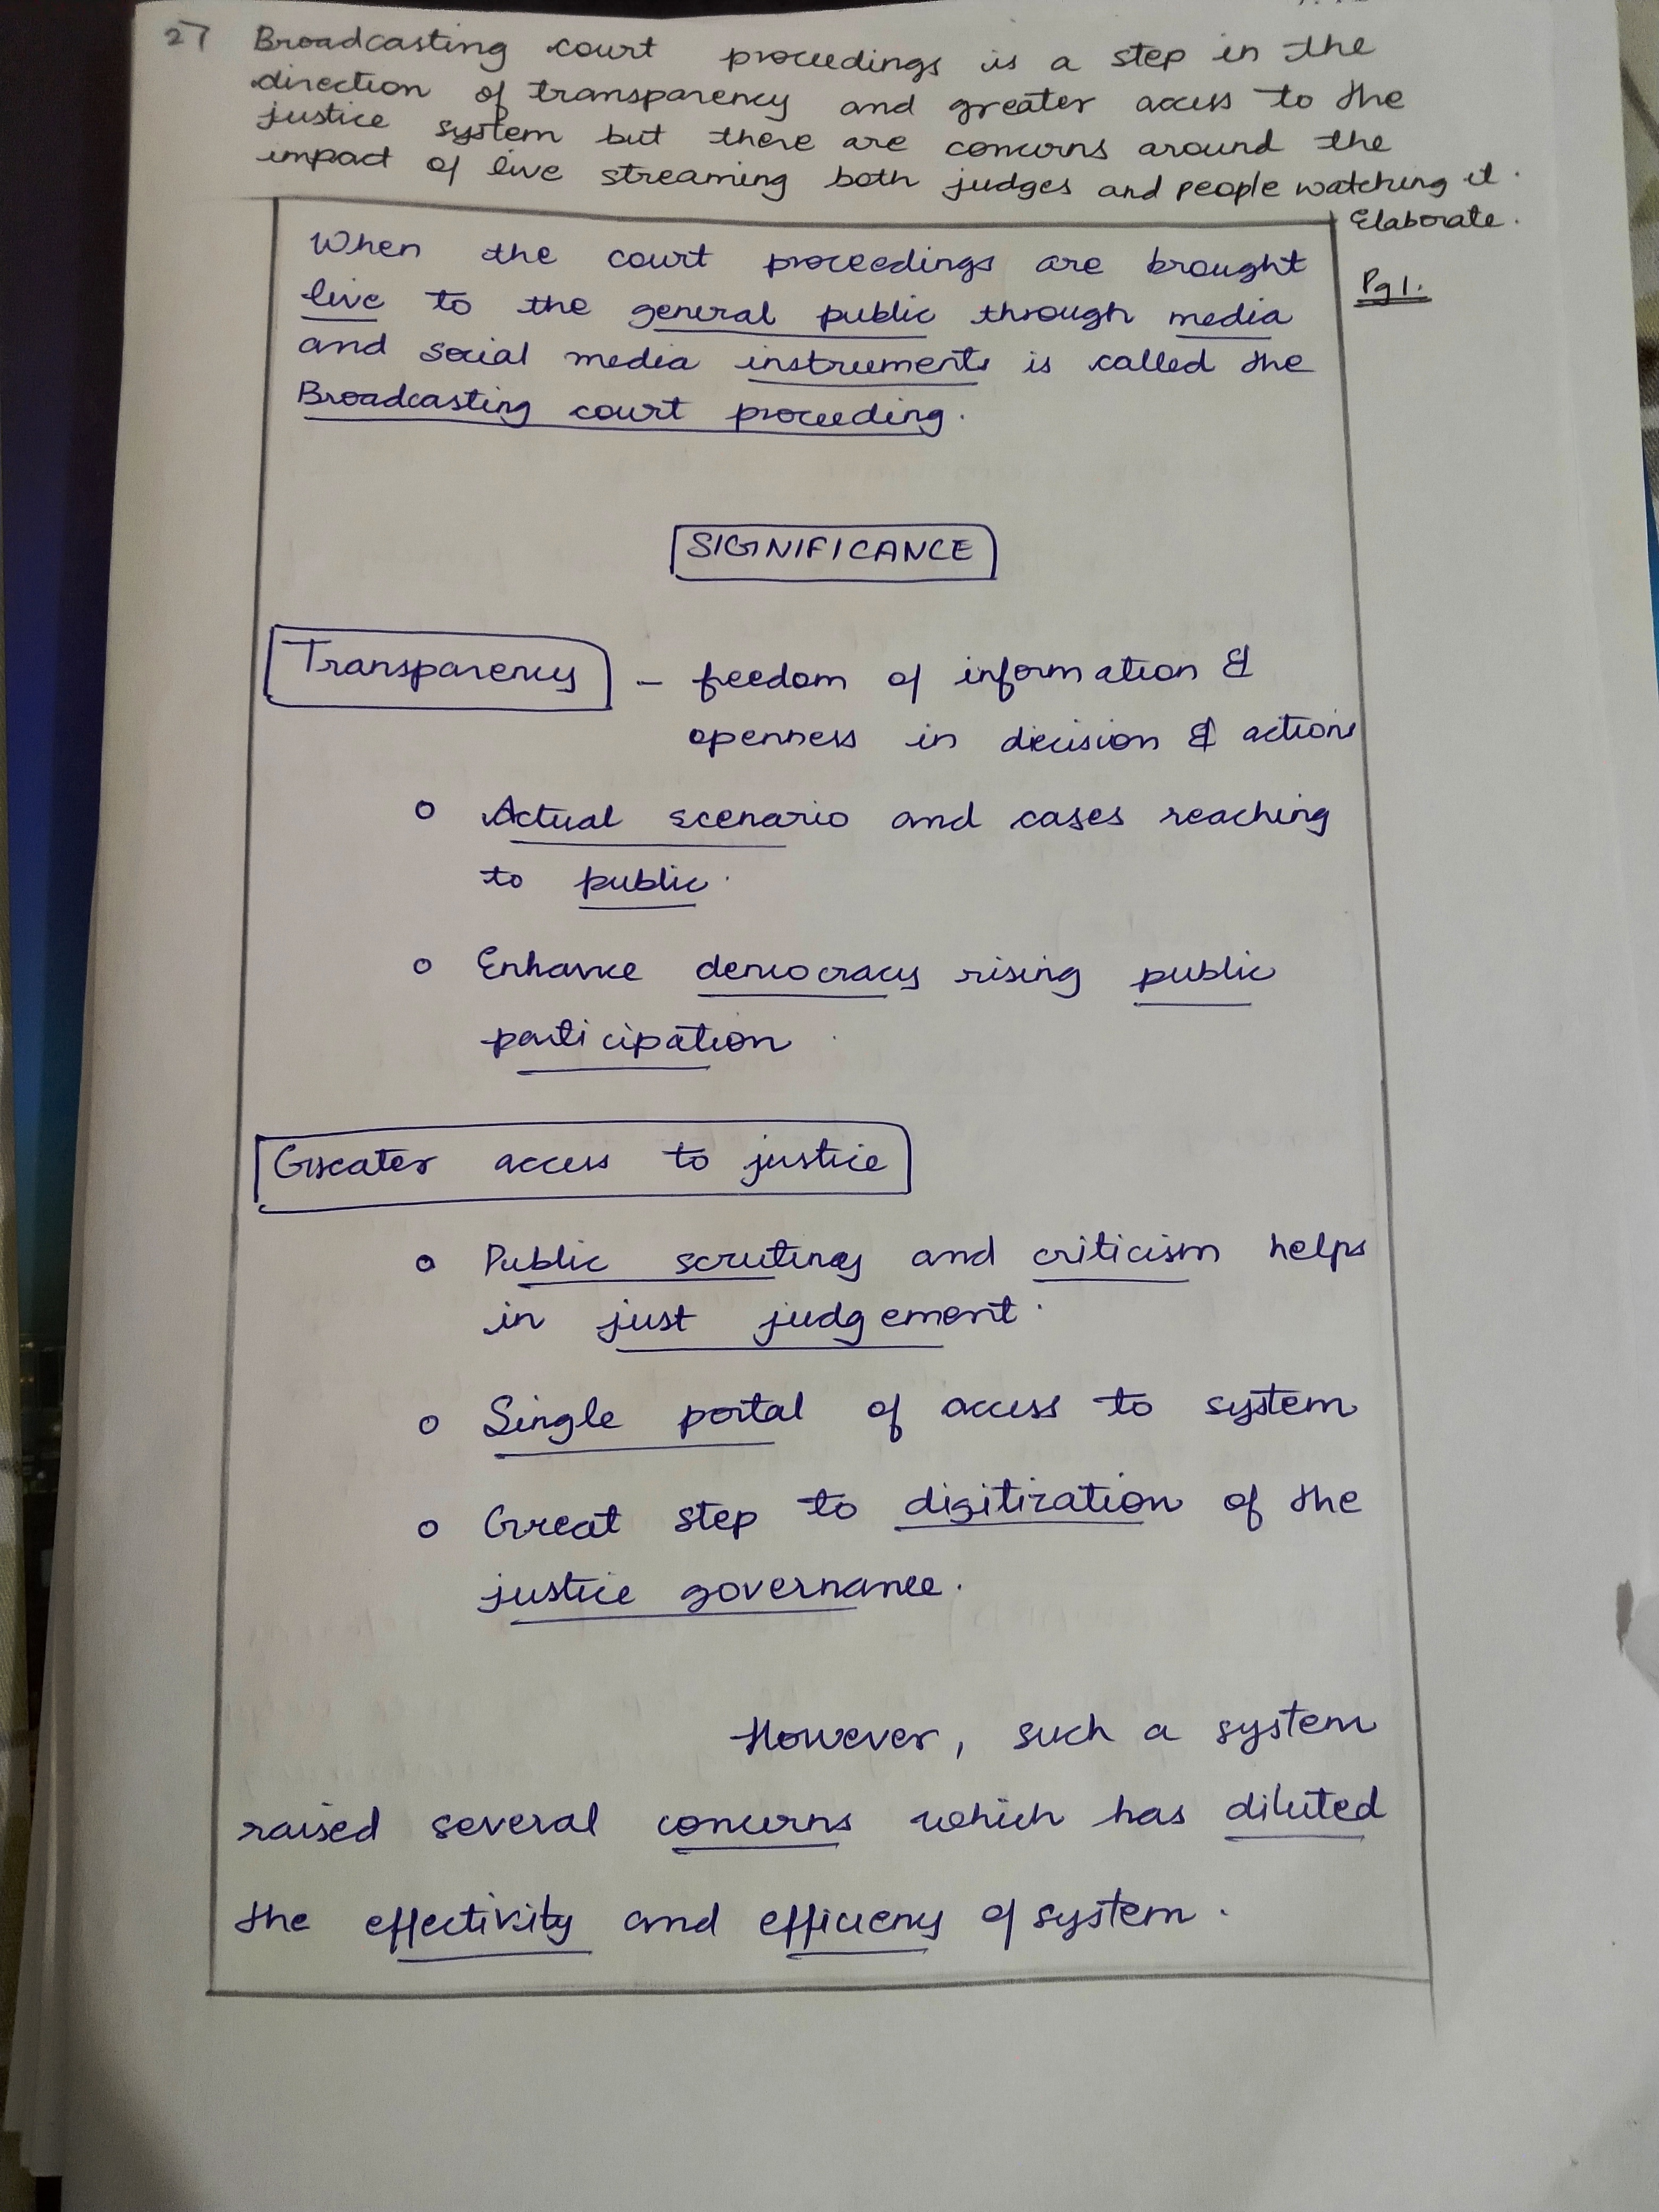 27 Broadcasting court proceedings is a step in the
direction of transparency and greater access to the
justice system but there are concerns around the
impact of live streaming both judges and people watching it.
Elaborate.
Pg 1.
When the court proceedings are brought
live to the general public through media
and social media instruments is called the
Broadcasting court proceeding.
SIGNIFICANCE
Transparency - freedom of information &
openness in decision & actions
o Actual scenario and cases reaching
to public.
o Enhance democracy rising public
participation
Greater access to justice
o Public scrutiny and criticism helps
in just judgement.
o Single portal of access to system
o Great step to digitization of the
justice governance.
However, such a system
raised several concerns which has diluted
the effectivity and efficiency of system.